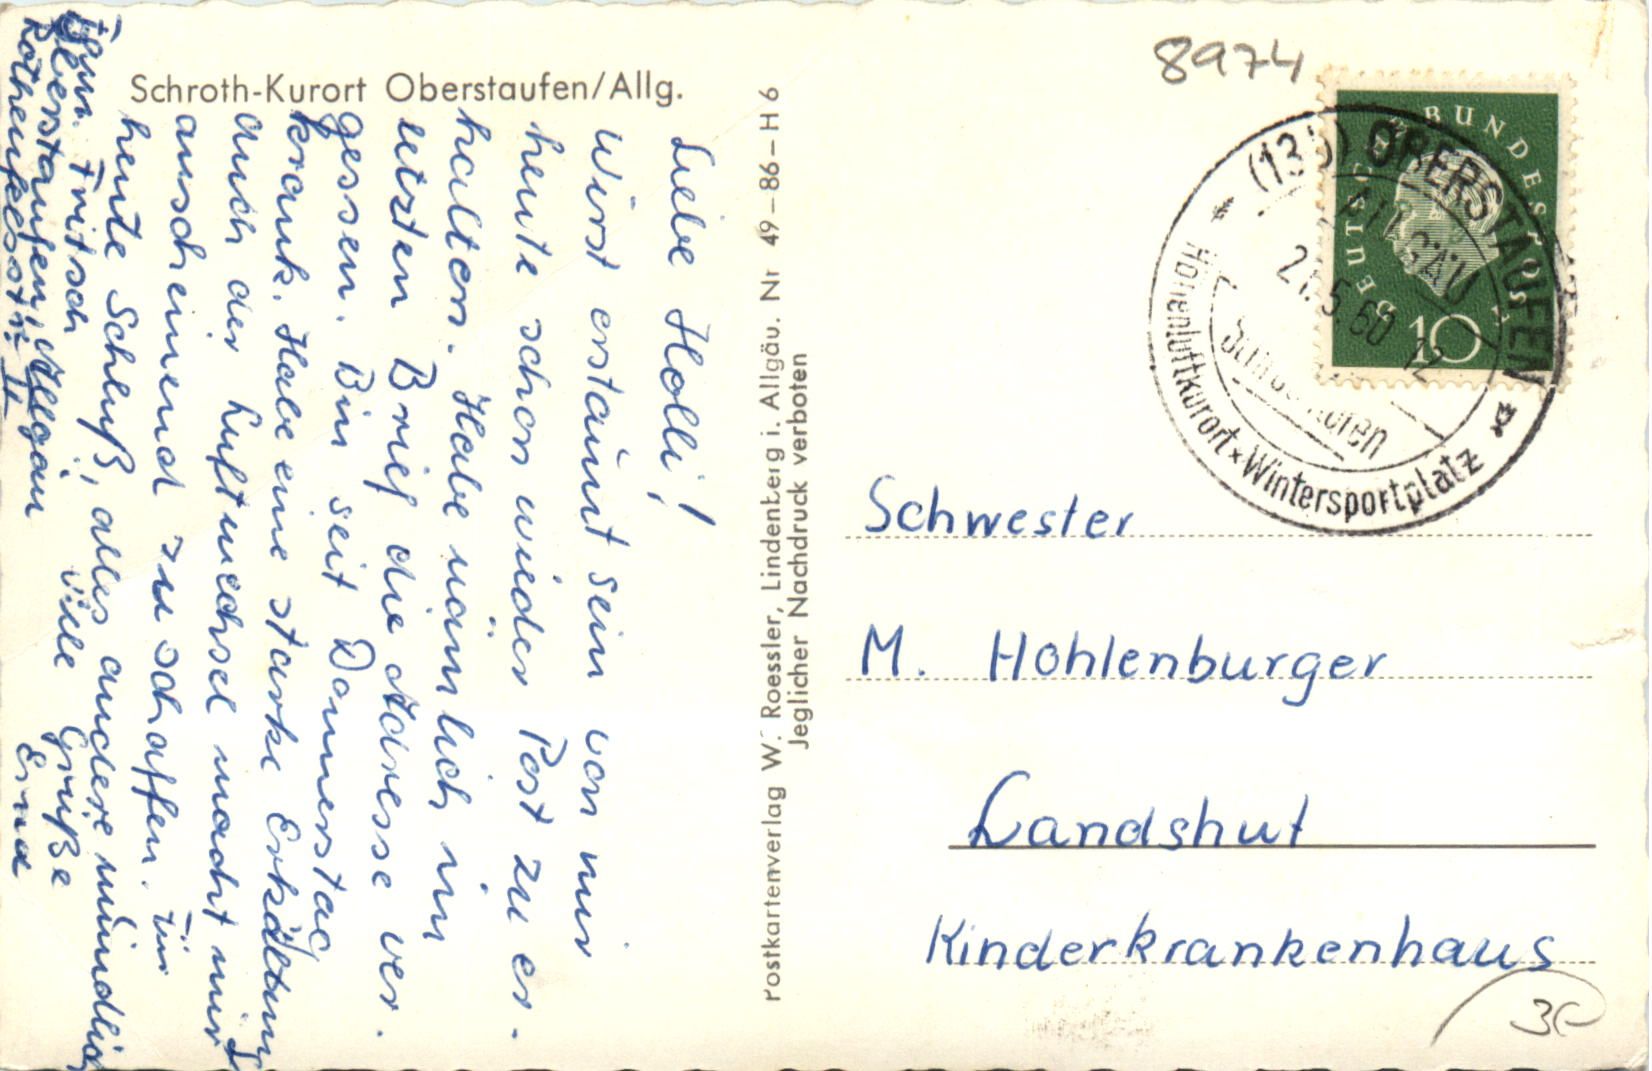 Schroth-Kurort Oberstaufen/Allg.
Liebe Holli!
Wirst erstaunt sein von mir
heute schon wieder Post zu er-
halten. Habe nämlich im
letzten Brief die Adresse ver-
gessen. Bin seit Donnerstag
krank. Habe eine starke Erkältung
auch der Luftwechsel macht mir
anscheinend zu schaffen. Für
heute Schluß, alles andere mündlich
Viele Grüße
Erna
Fritsch
Oberstaufen/Allgäu
Rothenfelsstr.
Postkartenverlag W. Roessler, Lindenberg i. Allgäu. Nr 49-86-H 6
Jeglicher Nachdruck verboten
8974
DEUTSCHE BUNDESPOST
10
OBERSTAUFEN
ALLGÄU
21.5.60 12
Höhenluftkurort * Wintersportplatz
Schwester
M. Hohlenburger
Landshut
Kinderkrankenhaus